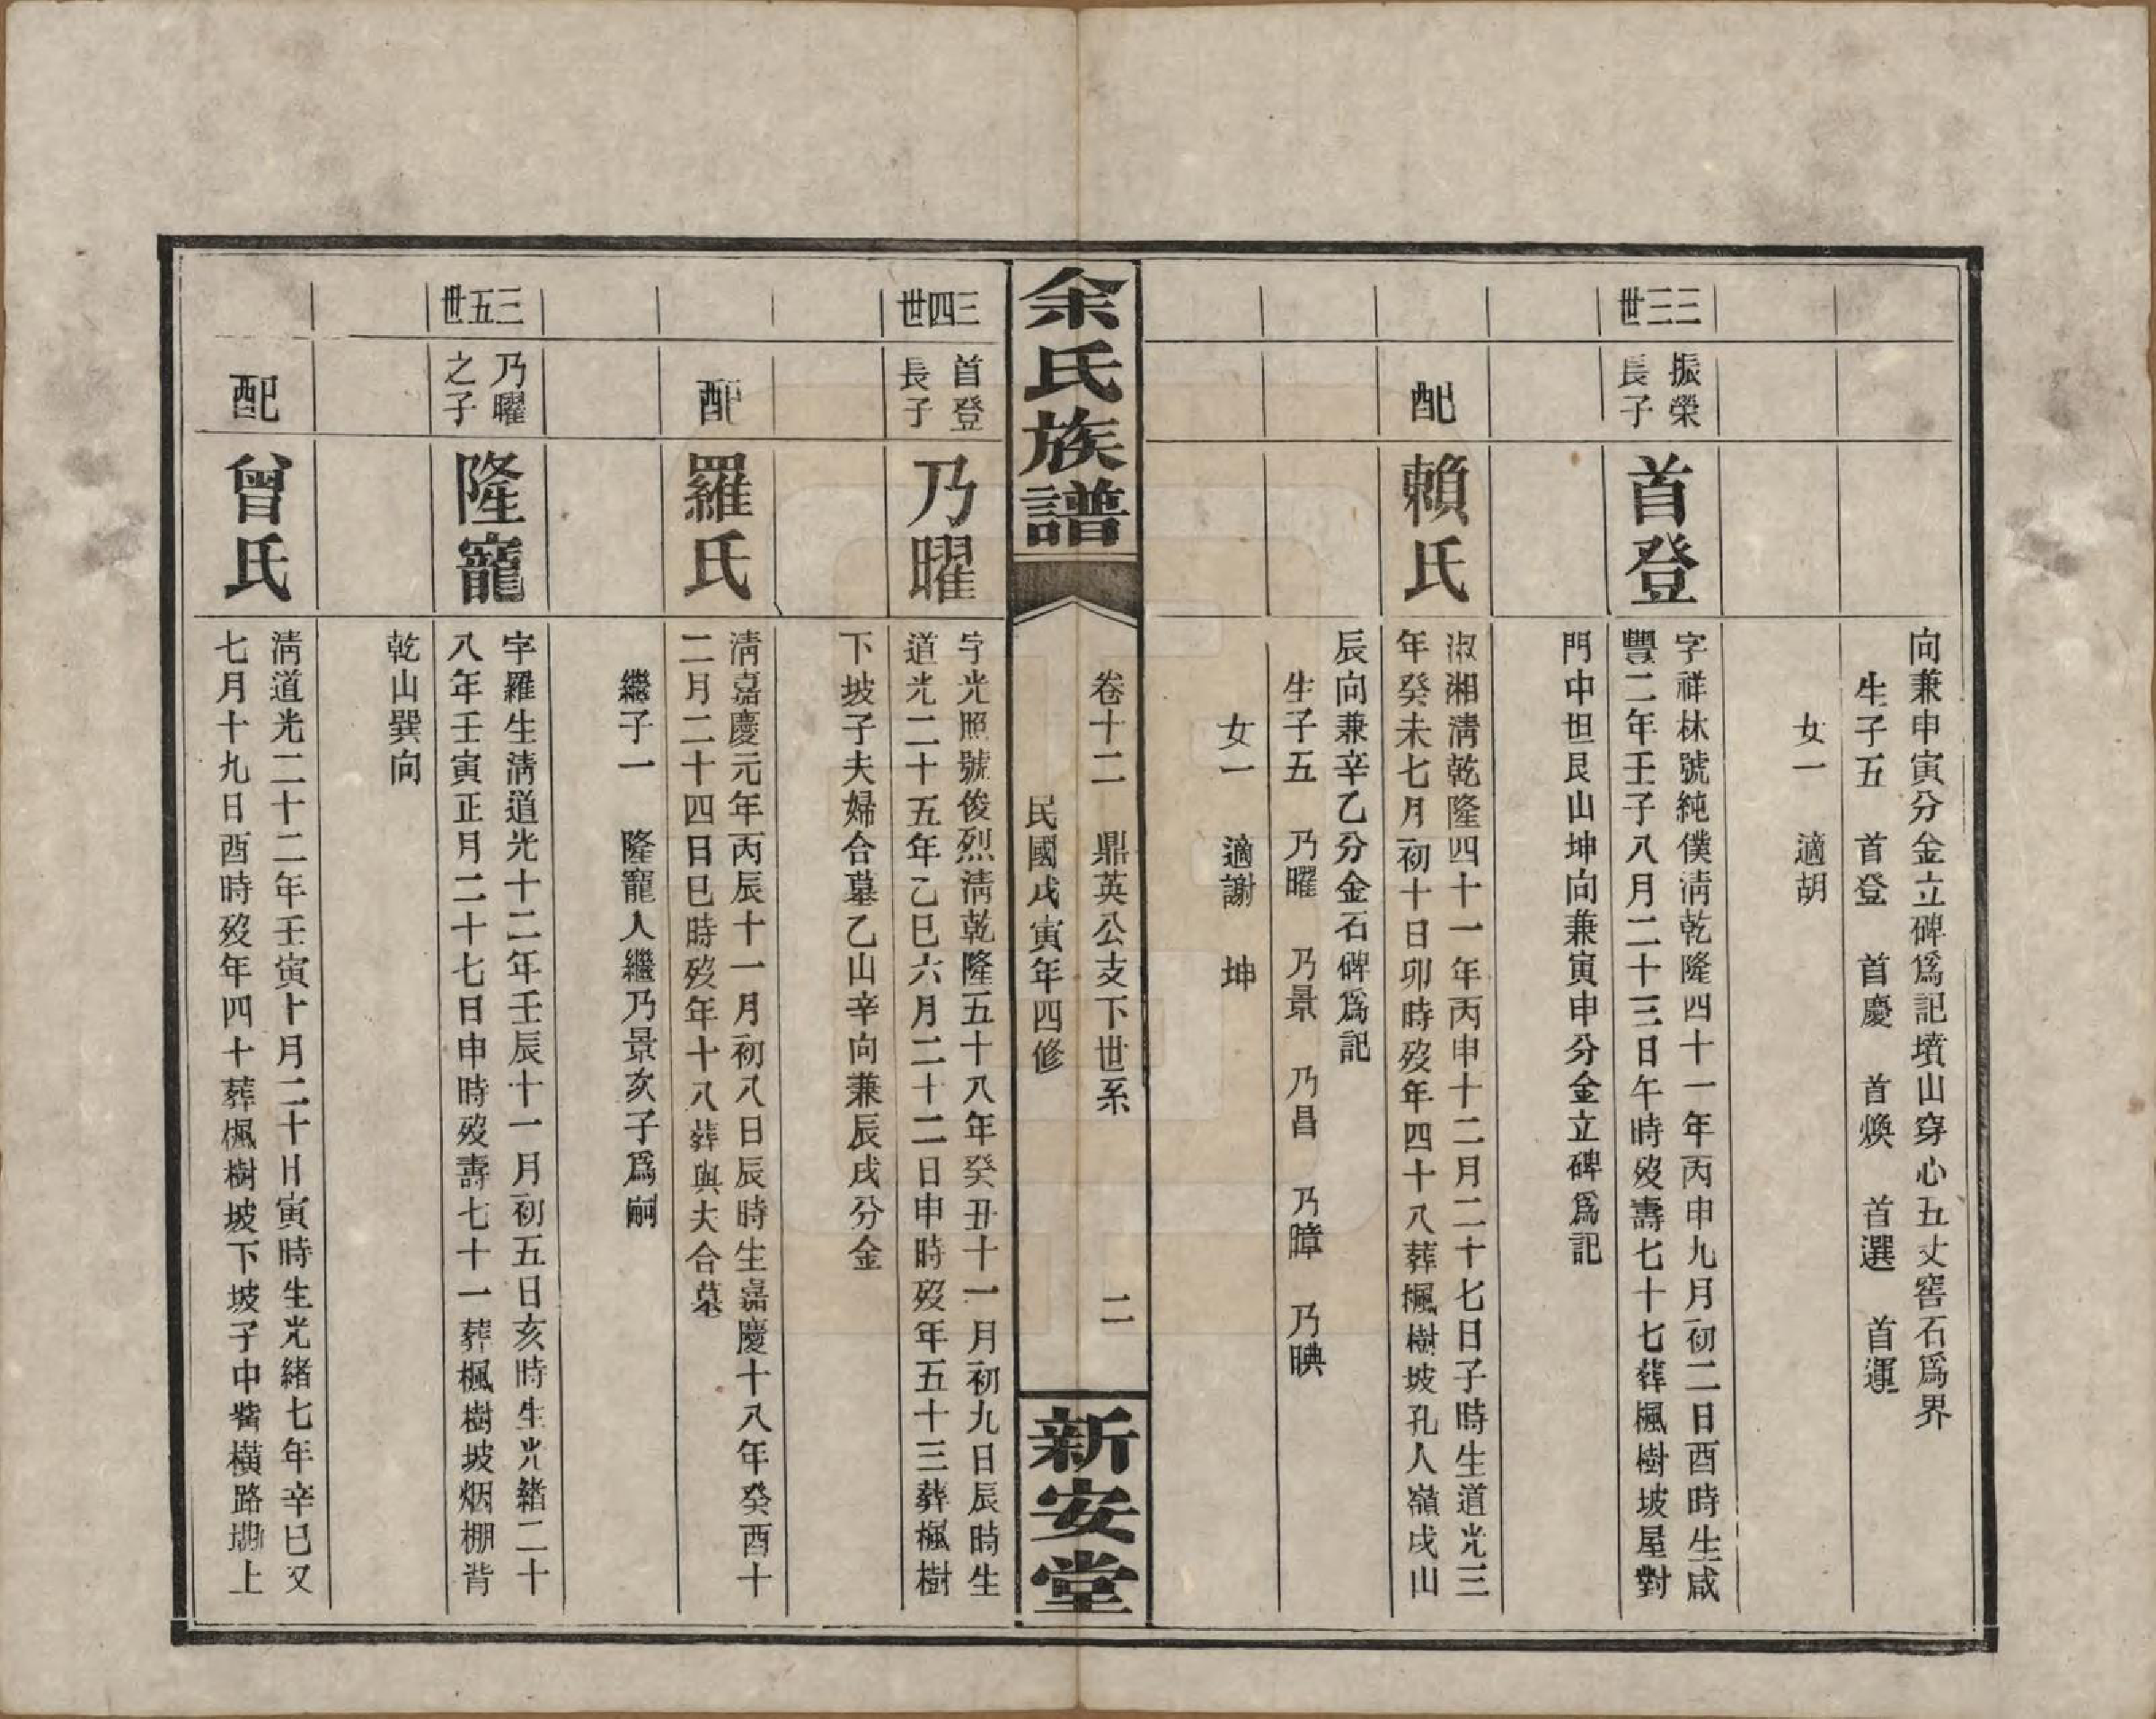 向兼申寅分金立碑爲記墳山穿心五丈窖石爲界
生子五　首登　首慶　首煥　首選　首運
女一　適胡
三三世
振榮
長子
首登
字祥林號純僕淸乾隆四十一年丙申九月初二日酉時生咸
豐二年壬子八月二十三日午時歿壽七十七葬楓樹坡屋對
門中世艮山坤向兼寅申分金立碑爲記
配
賴氏
淑湘淸乾隆四十一年丙申十二月二十七日子時生道光三
年癸未七月初十日卯時歿年四十八葬楓樹坡孔人嶺戌山
辰向兼辛乙分金石碑爲記
生子五　乃曜　乃景　乃昌　乃暲　乃晪
女一　適謝　坤
余氏族譜
卷十二　鼎英公支下世系　二
民國戊寅年四修
新安堂
三四世
首登
長子
乃曜
字光照號俊烈淸乾隆五十八年癸丑十一月初九日辰時生
道光二十五年乙巳六月二十二日申時歿年五十三葬楓樹
下坡子夫婦合墓乙山辛向兼辰戌分金
配
羅氏
淸嘉慶元年丙辰十一月初八日辰時生嘉慶十八年癸酉十
二月二十四日巳時歿年十八葬與夫合墓
繼子一　隆寵人繼乃景次子爲嗣
三五世
乃曜
之子
隆寵
字羅生淸道光十二年壬辰十一月初五日亥時生光緒二十
八年壬寅正月二十七日申時歿壽七十一葬楓樹坡烟棚背
乾山巽向
配
曾氏
淸道光二十二年壬寅十月二十日寅時生光緒七年辛巳又
七月十九日酉時歿年四十葬楓樹坡下坡子中嘴橫路塝上